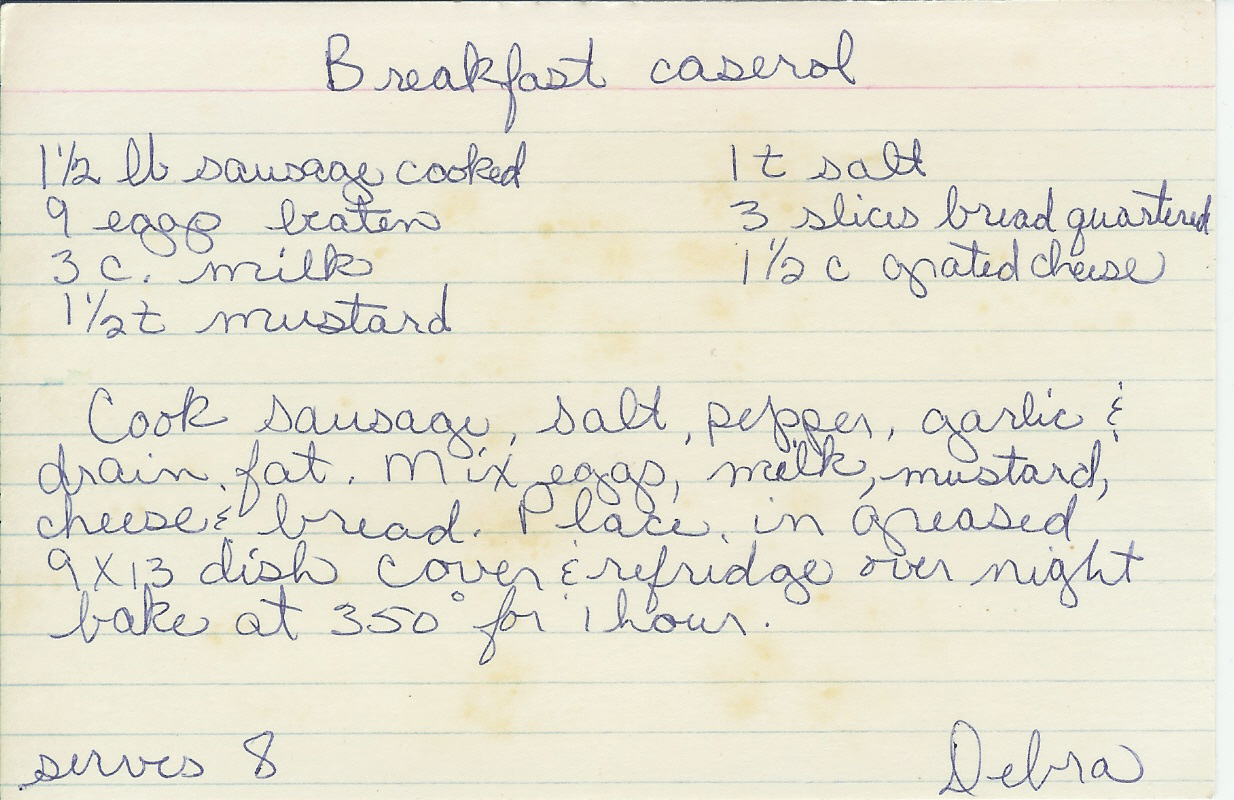 Breakfast caserol
1 1/2 lb sausage cooked
9 eggs beaten
3 c. milk
1 1/2 t mustard
1 t salt
3 slices bread quartered
1 1/2 c grated cheese
Cook sausage, salt, pepper, garlic &
drain fat. Mix eggs, milk, mustard,
cheese & bread. Place in greased
9X13 dish cover & refridge over night
bake at 350° for 1 hour.
serves 8
Debra